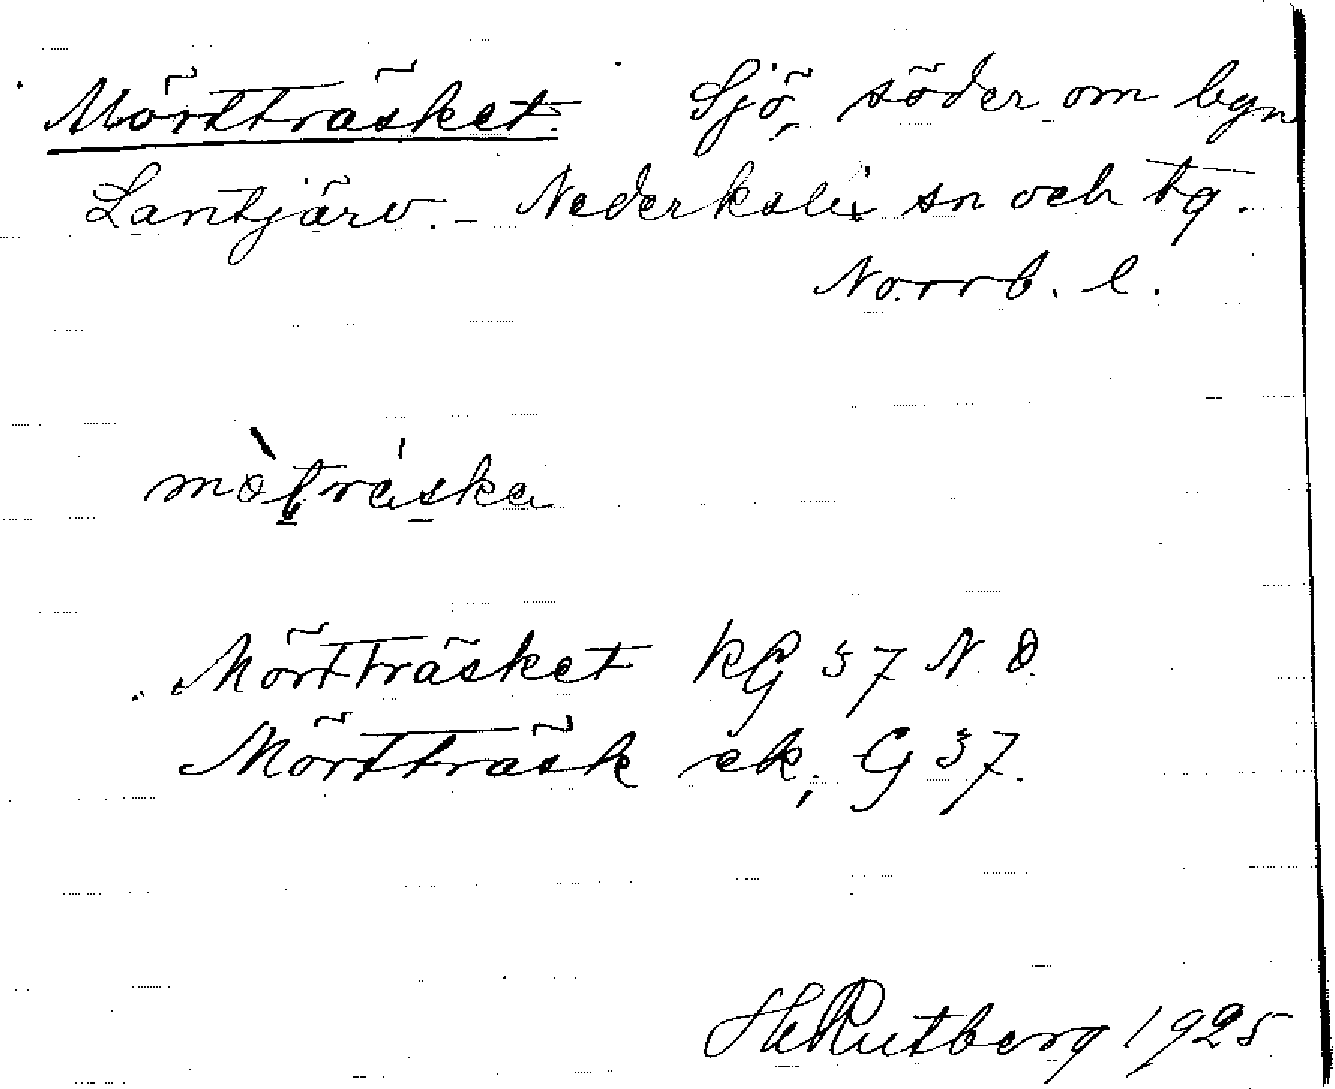 Mörtträsket. Sjö, söder om byn
Lantjärv. - Nederkalix sn och tg.
Norrb. l.
mö̀trǻska
Mörtträsket kG 37 N. O.
Mörtträsk ek, G 37.
H Rutberg 1925